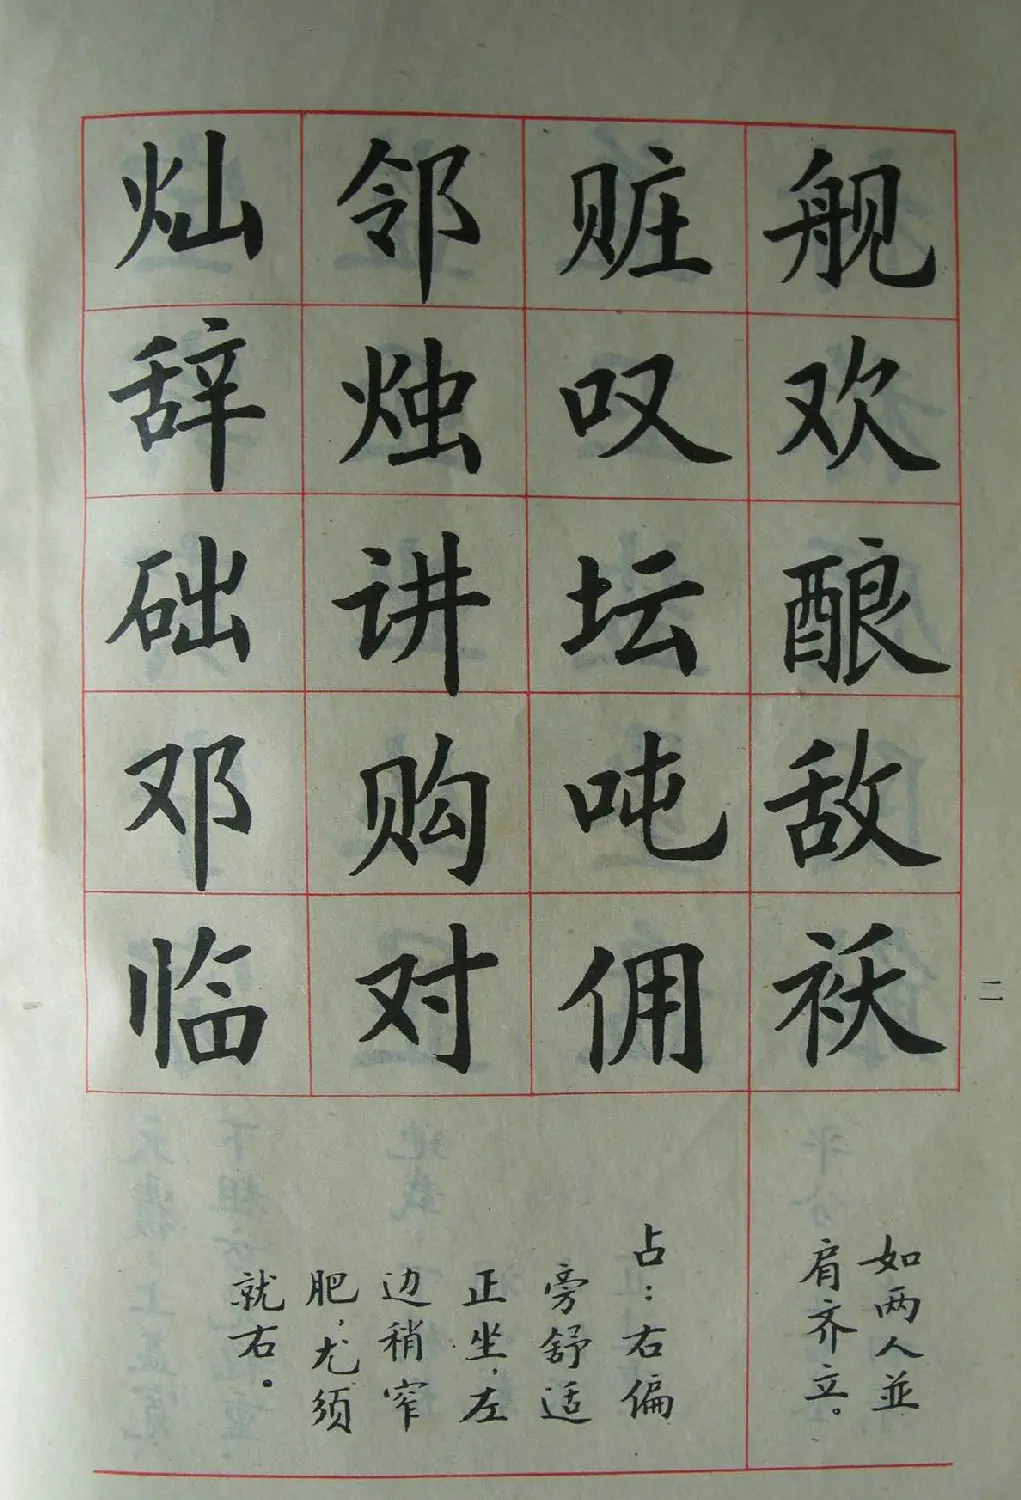 舰欢酿敌袄
赃叹坛吨佣
邻烛讲购对
灿辞础邓临
如两人並
肩齐立。
占：右偏
旁舒适
正坐，左
边稍窄
肥，尤须
就右。
二